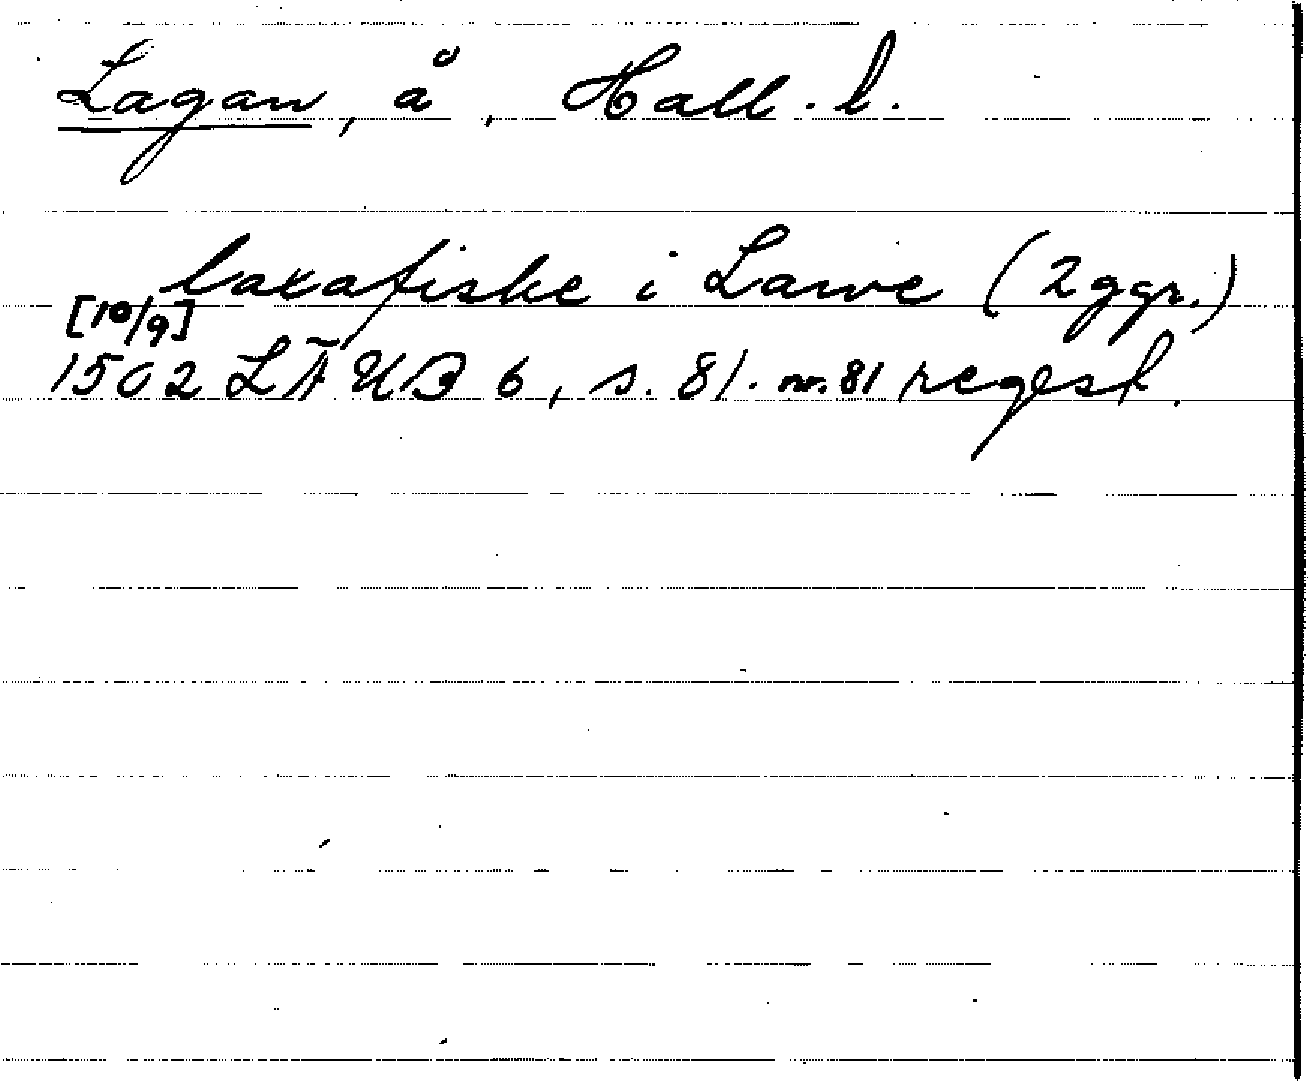 Lagan, å, Hall. l.
laxafiske i Lawe (2 ggr.)
[10/9]
1502 LÄUB 6, s. 81. nr. 81 regest.